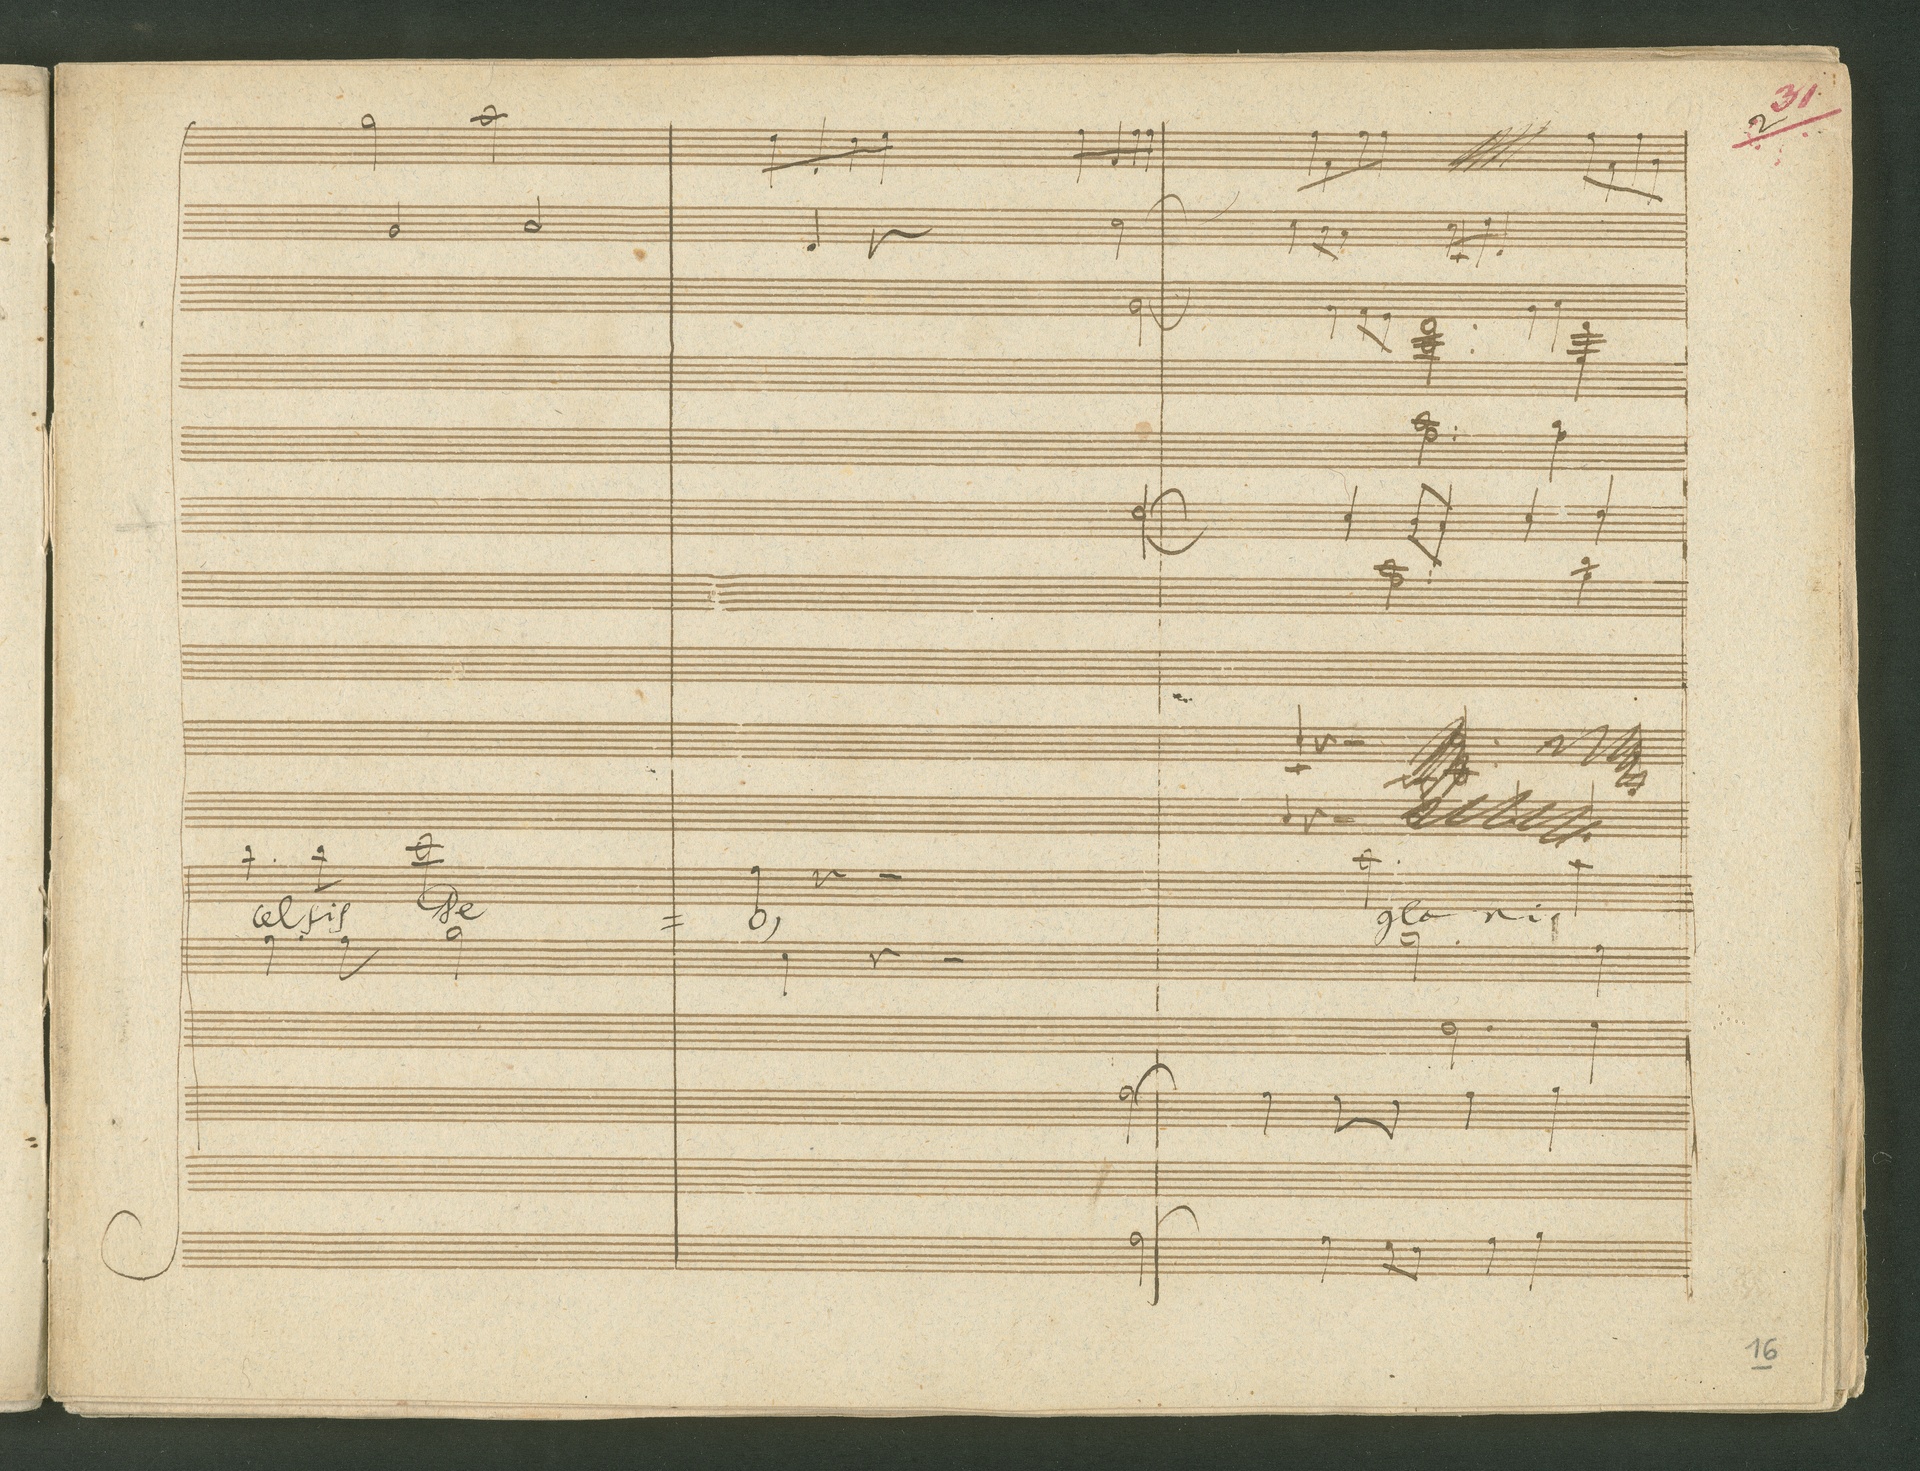 31
2
celsis De = o,
glo ri
16